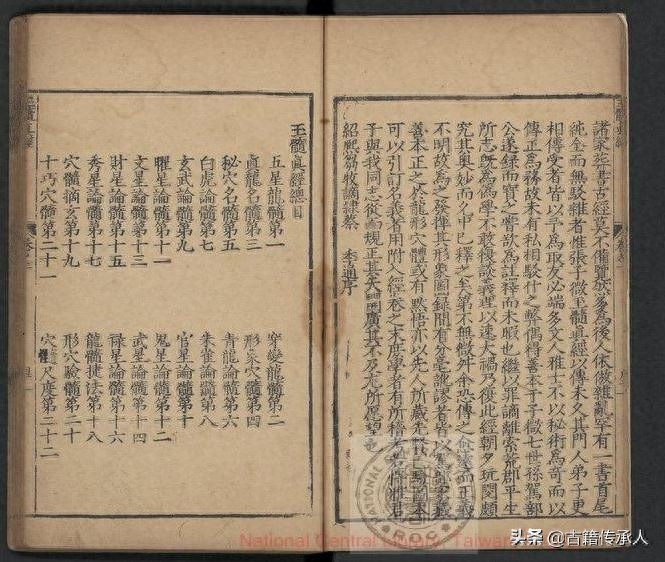 諸家葬書古經莫不備覽然多為後人依倣雜亂罕有一書首尾
純全而無駁雜者惟張子微玉髓真經以傳未久其門人弟子更
相傳受者皆以予為取友必端多文人雅士不以秘術為奇而以
傳正為務故未有私相駁什之弊偶得善本于子微七世孫駕部
公遂録而寶之嘗欲為註釋而未暇也繼以罪謫離索荒郡平生
所志既為偽學不敢復談義理以速大禍乃復此經朝夕玩閱頗
究其奥妙而文中已釋之矣第不無微舛余恐傳之愈遠而正義
不明故為之發揮其形象圖録間有分毫訛誤者皆以
善本正之矣龍形穴體或有默悟亦以先人所藏
可以引訂名義者用附入經卷之末庶學者有所稽考
子與我同志從而規正其失圖廣其不及尤所愿望也
紹熙 牧謫隷蔡 季通序
玉髓真經總目
五星龍髓第一 穿變龍髓第二
真龍名髓第三 形穴髓第四
秘穴名髓第五 青龍論髓第六
白虎論髓第七 朱雀論髓第八
玄武論髓第九 官星論髓第十
曜星論髓第十一 鬼星論髓第十二
文星論髓第十三 武星論髓第十四
財星論髓第十五 禄星論髓第十六
秀星論髓第十七 龍髓捷法第十八
穴髓摘玄第十九 形穴驗髓第二十
十巧穴髓第二十一 穴髓尺度第二十二
National Central Library, Taiwan
頭条 @古籍传承人